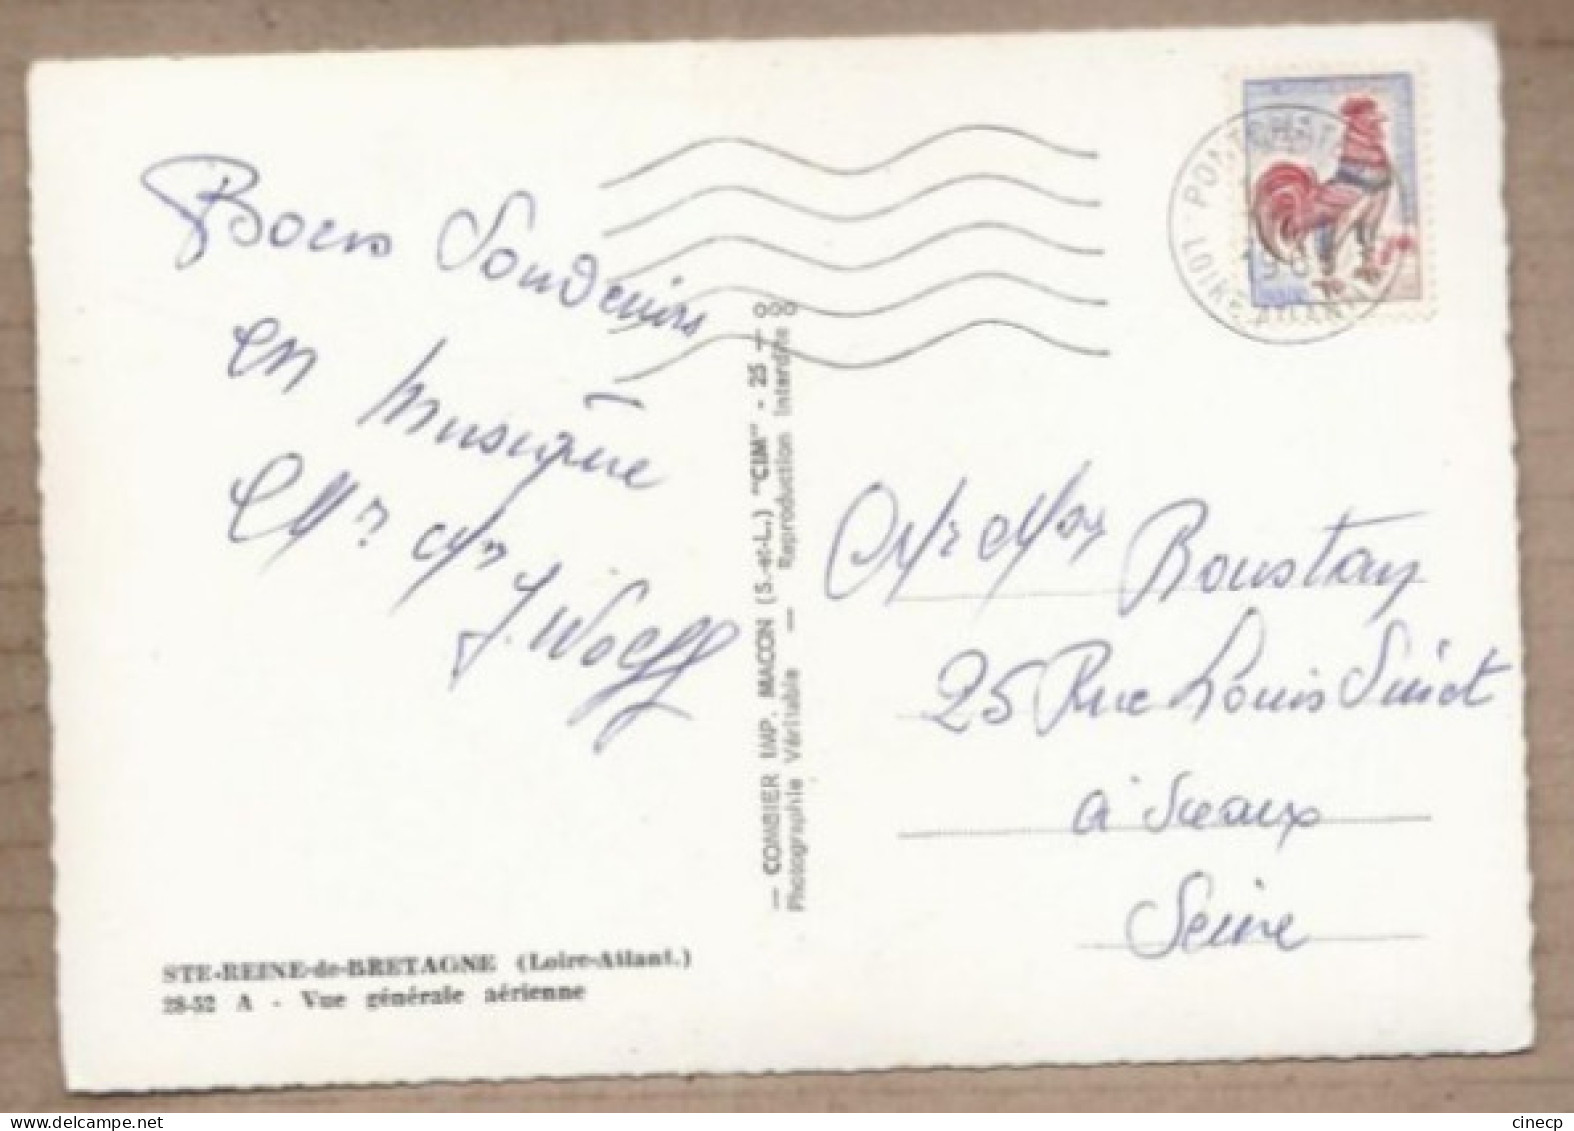 Bons Souvenirs
en musique
Mr Mm
J. Wolff
STE-REINE-de-BRETAGNE (Loire-Atlant.)
28-52 A - Vue générale aérienne
— COMBIER IMP. MACON (S.-et-L.) "CIM" - 25 —
Photographie Véritable — Reproduction Interdite
PONTCHAT
LOIRE ATLAN
Mr Mme Roustan
25 Rue Louis
à Sceaux
Seine
cinecp